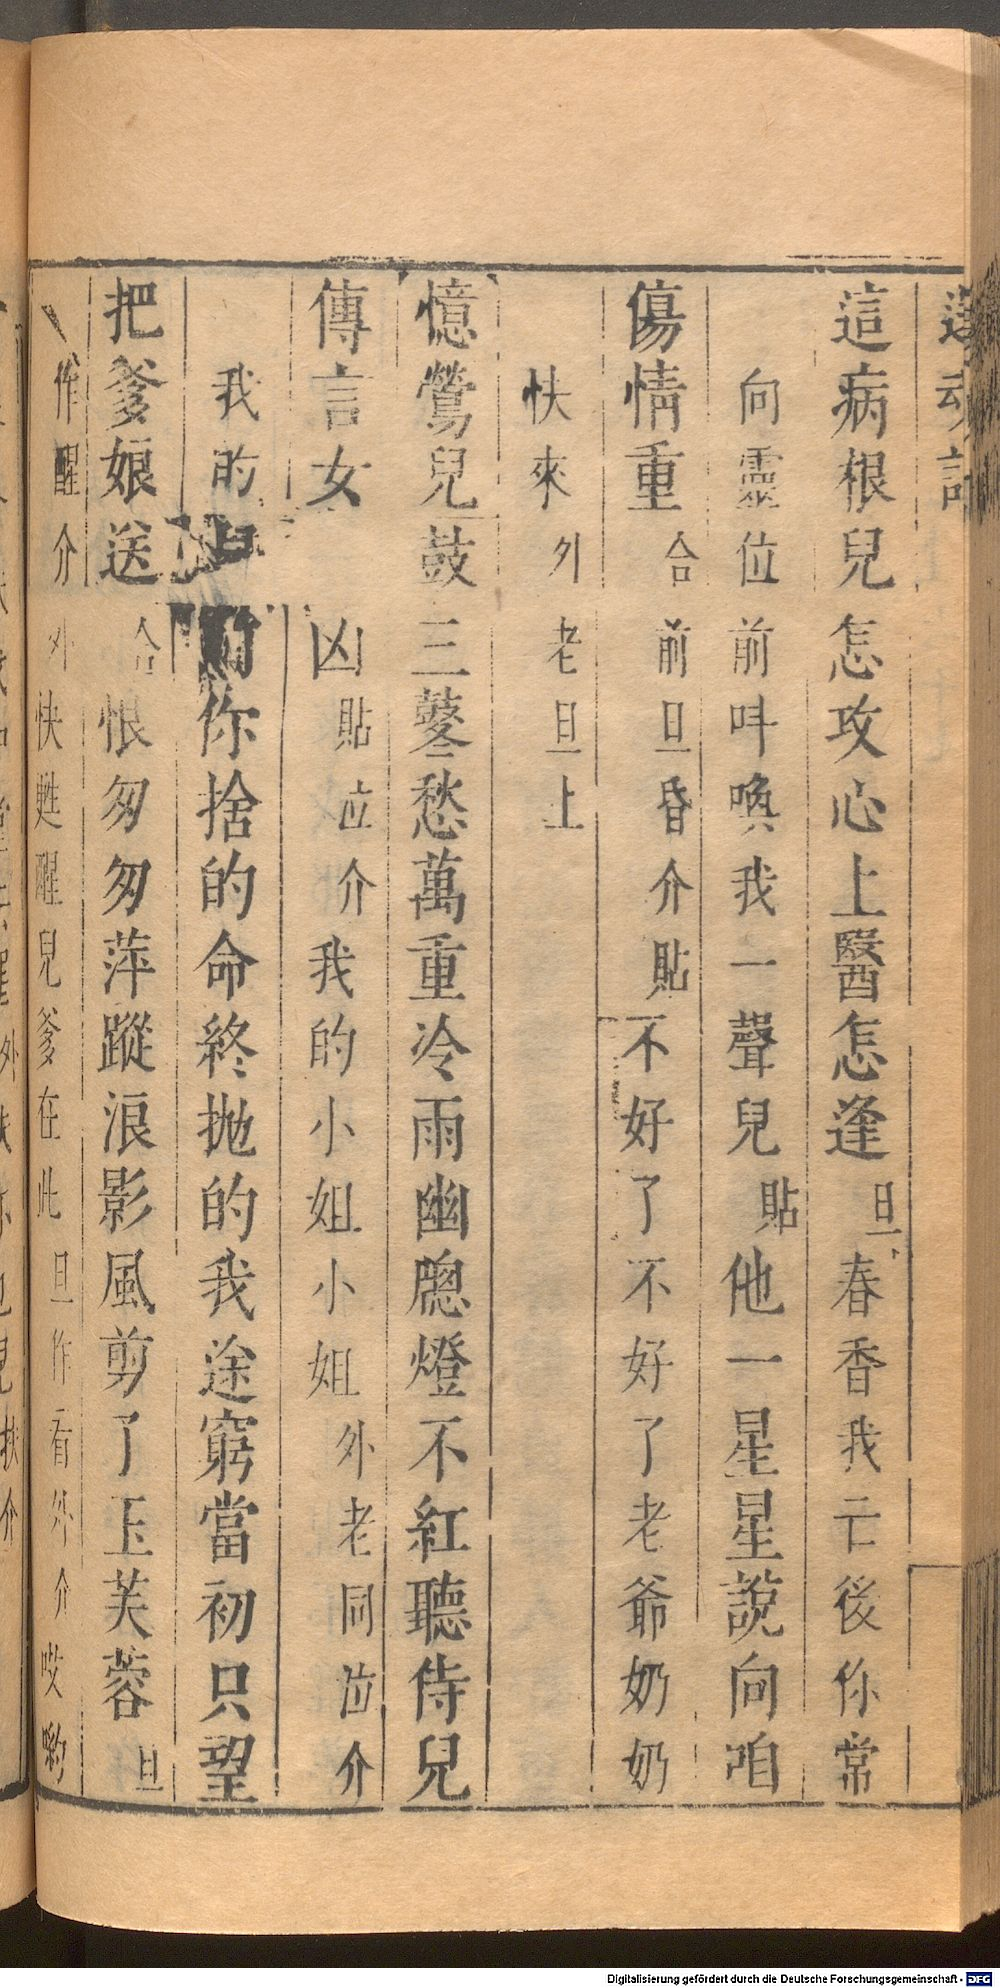 這病根兒怎攻心上醫怎逢旦春香我亡後你常
向靈位前呌喚我一聲兒貼他一星星說向咱
傷情重合前旦昏介貼不好了不好了老爺奶奶
快來外老旦上
憶鶯兒鼓三鼕愁萬重冷雨幽牕燈不紅聽侍兒
傳言女凶貼泣介我的小姐小姐外老同泣介
我的你捨的命終拋的我途窮當初只望
把爹娘送合恨匆匆萍蹤浪影風剪了玉芙蓉旦
作醒介外快甦醒兒爹在此旦作看外介哎喲
Digitalisierung gefördert durch die Deutsche Forschungsgemeinschaft - DFG